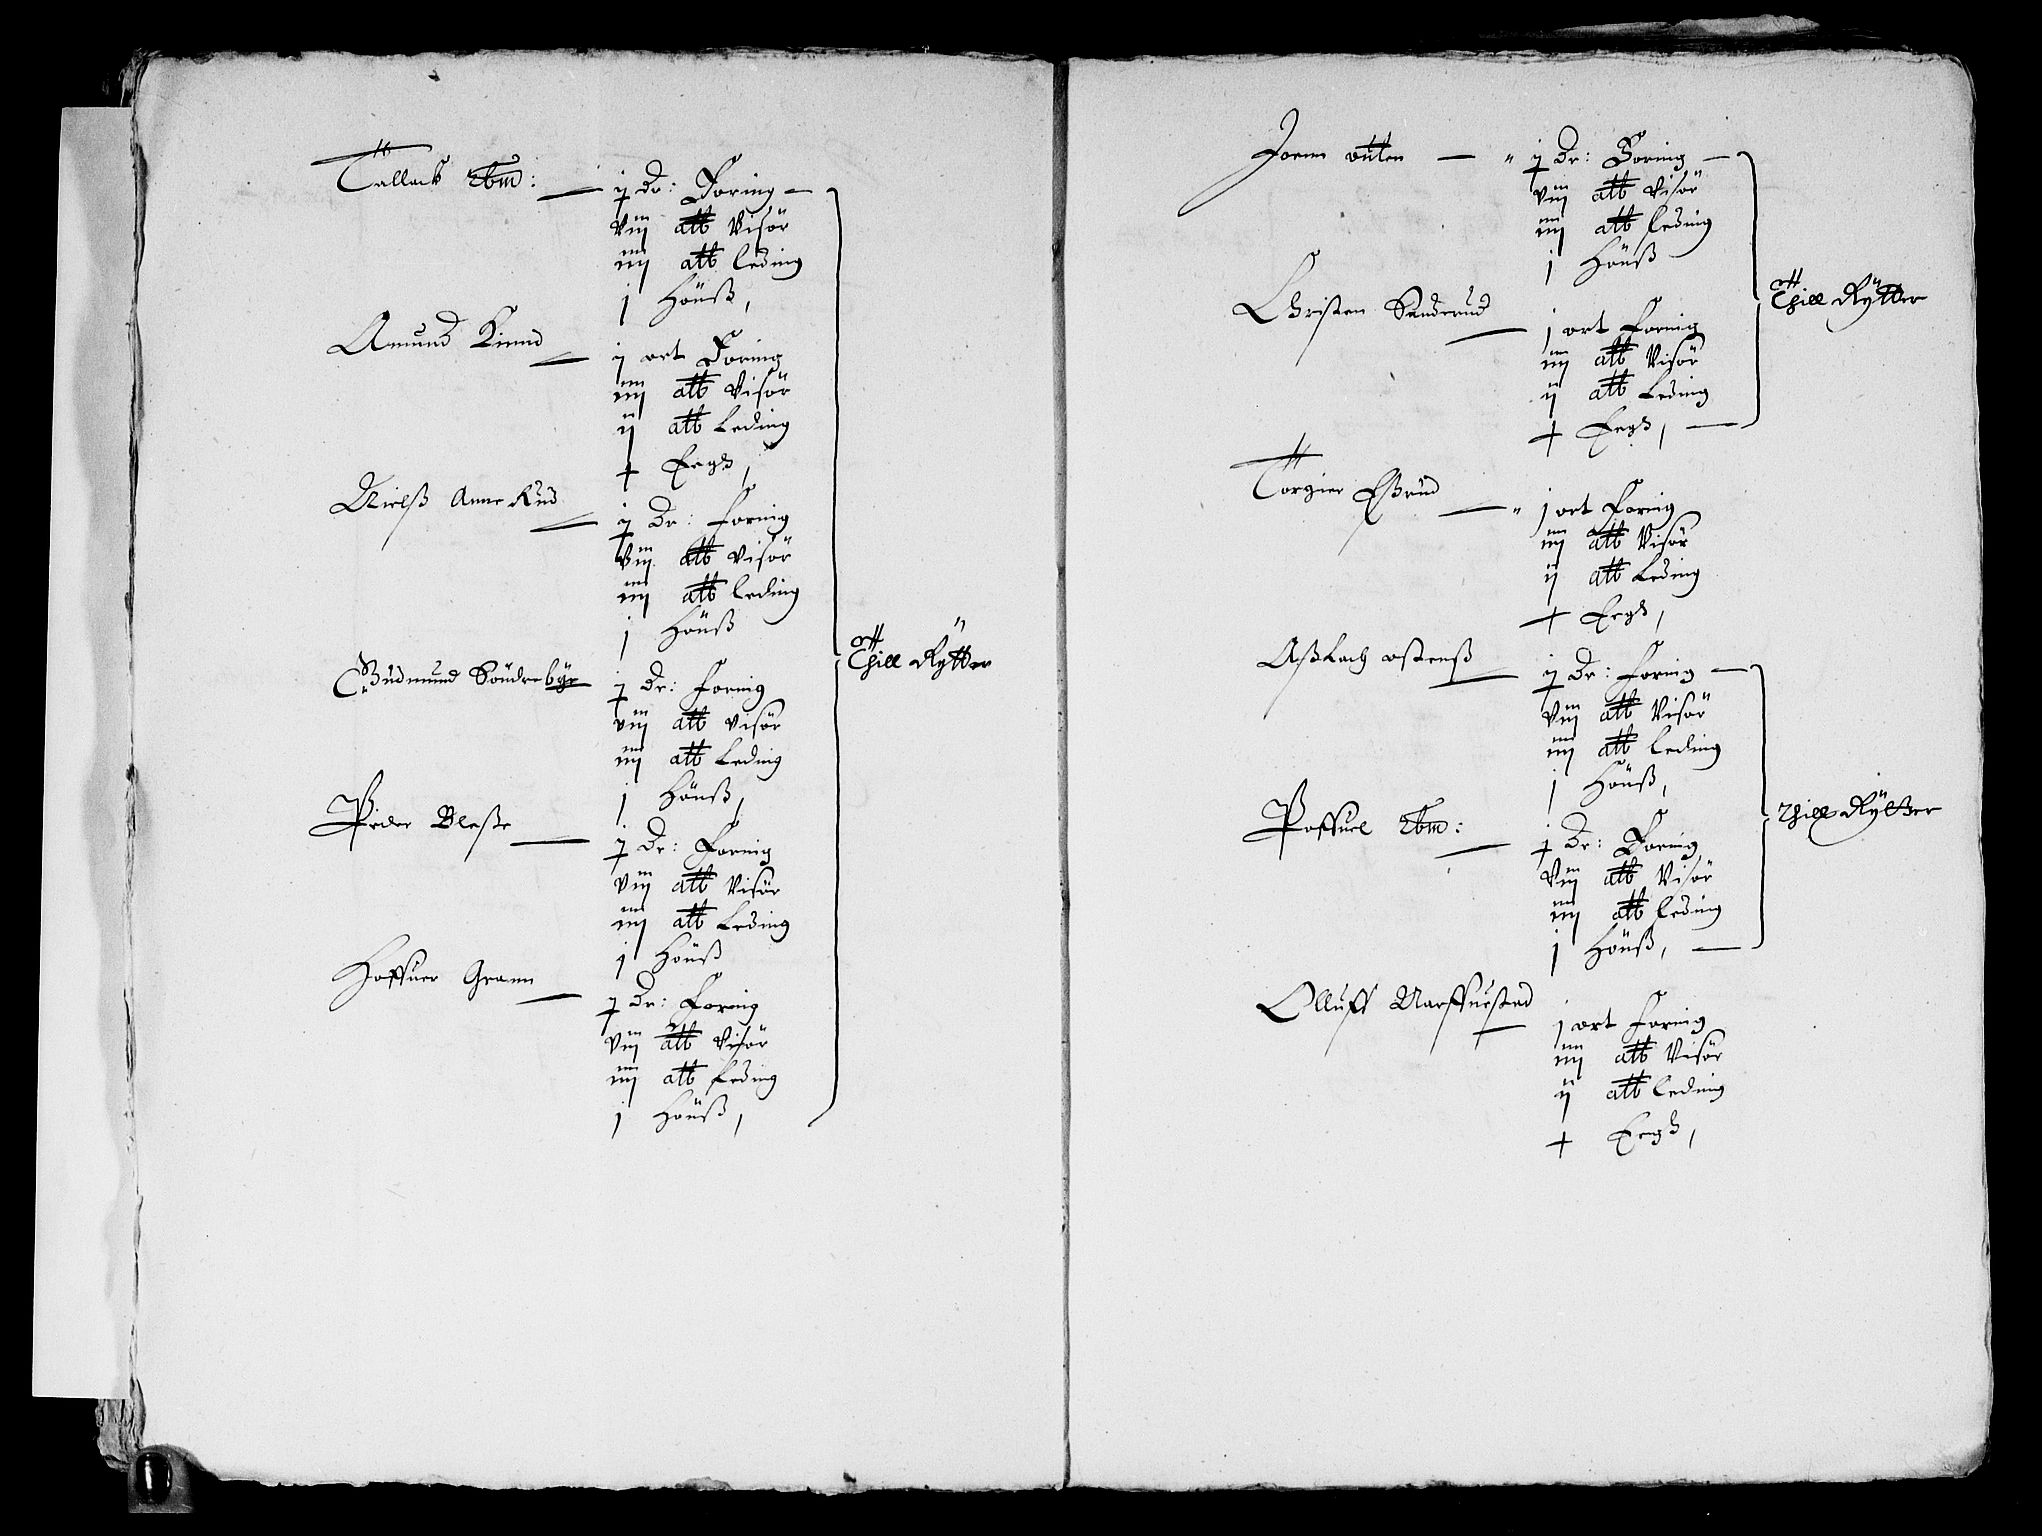 Tallack ibm: — j Dr: Foring —
viij att Visör
iiij att leding
j Hönß,
Amund Kinnd — j ort Foring
iiij att Visör
ij att Leding
+ Eegß,
Nielß Anne Rud — j Dr: Foring
viij att Visör
iiij att leding
j Hönß
Gudmund Söndrebye j Dr: Foring
viij att Visör
iiij att Leding
j Hönß,
Peder Bleße — j Dr: Foring
viij att Visör
iiij att Leding
j Hönß
Hoffuer Gramm — j Dr: Foring
viij att Visör
iiij att Leding
j Hönß,
Thill Rytter
Joenn outten — " j Dr: Foring —
viij att Visör
iiij att leding
j Hönß
Christen Sanderud — j ort Foring
iiij att Visör
ij att Leding
+ Eegß, —
Thill Rytter
Torgier Eßrud — " j ort Foring
iiij att Visör
ij att Leding
+ Eegß,
Aßlach ostenß — j Dr: Foring —
viij att Visör
iiij att leding
j Hönß,
Poffuel ibm: — j Dr: Foring
viij att Visör
iiij att leding
j Hönß, —
Thill Rytter
Olluff Narffuestad — j ort Foring
iiij att Visör
ij att leding
+ Eegß,